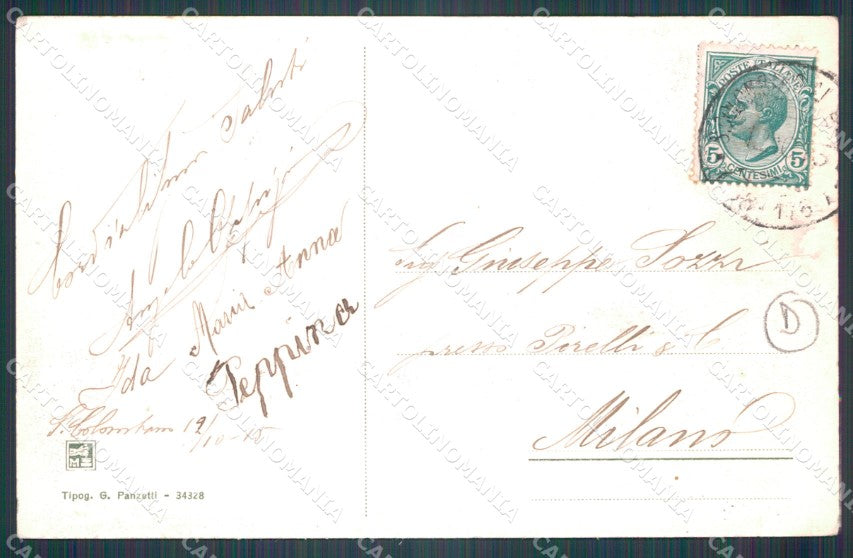 Cordialissimi saluti
Angelo
Ida Maria Anna
Peppina
S. Colombano 19/10-15
Tipog. G. Panzetti - 34328
POSTE ITALIANE
5 5
CENTESIMI
Giuseppe Pozzi
presso Pirelli & C.
Milano
D
CARTOLINOMANIA